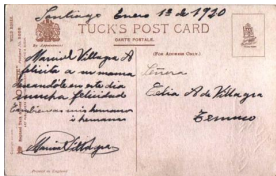 Santiago Enero 1º de 1920
TUCK'S POST CARD
CARTE POSTALE.
(FOR ADDRESS ONLY.)
Manuel Villagra A
felicita a su mama
deseandole en este dia
mucha felicidad
tambien a mis hermanos
i hermanas
Manuel Villagra
Señora
Elia A de Villagra
Temuco